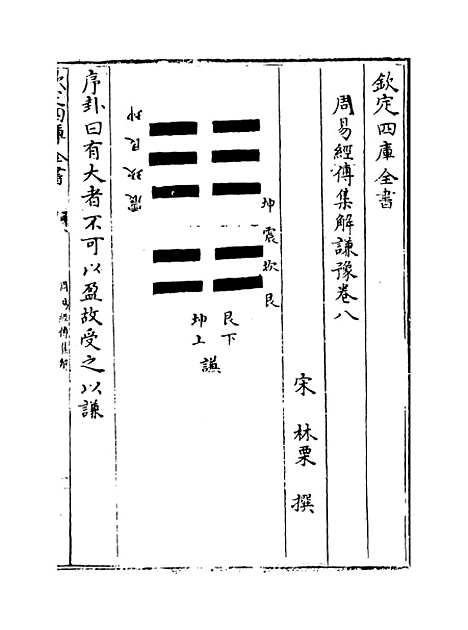 欽定四庫全書
周易經傳集解謙豫卷八
宋 林栗 撰
坤 震 坎 艮
坤 艮 坎 震
艮下
坤上
謙
序卦曰有大者不可以盈故受之以謙
欽定四庫全書
周易經傳集解